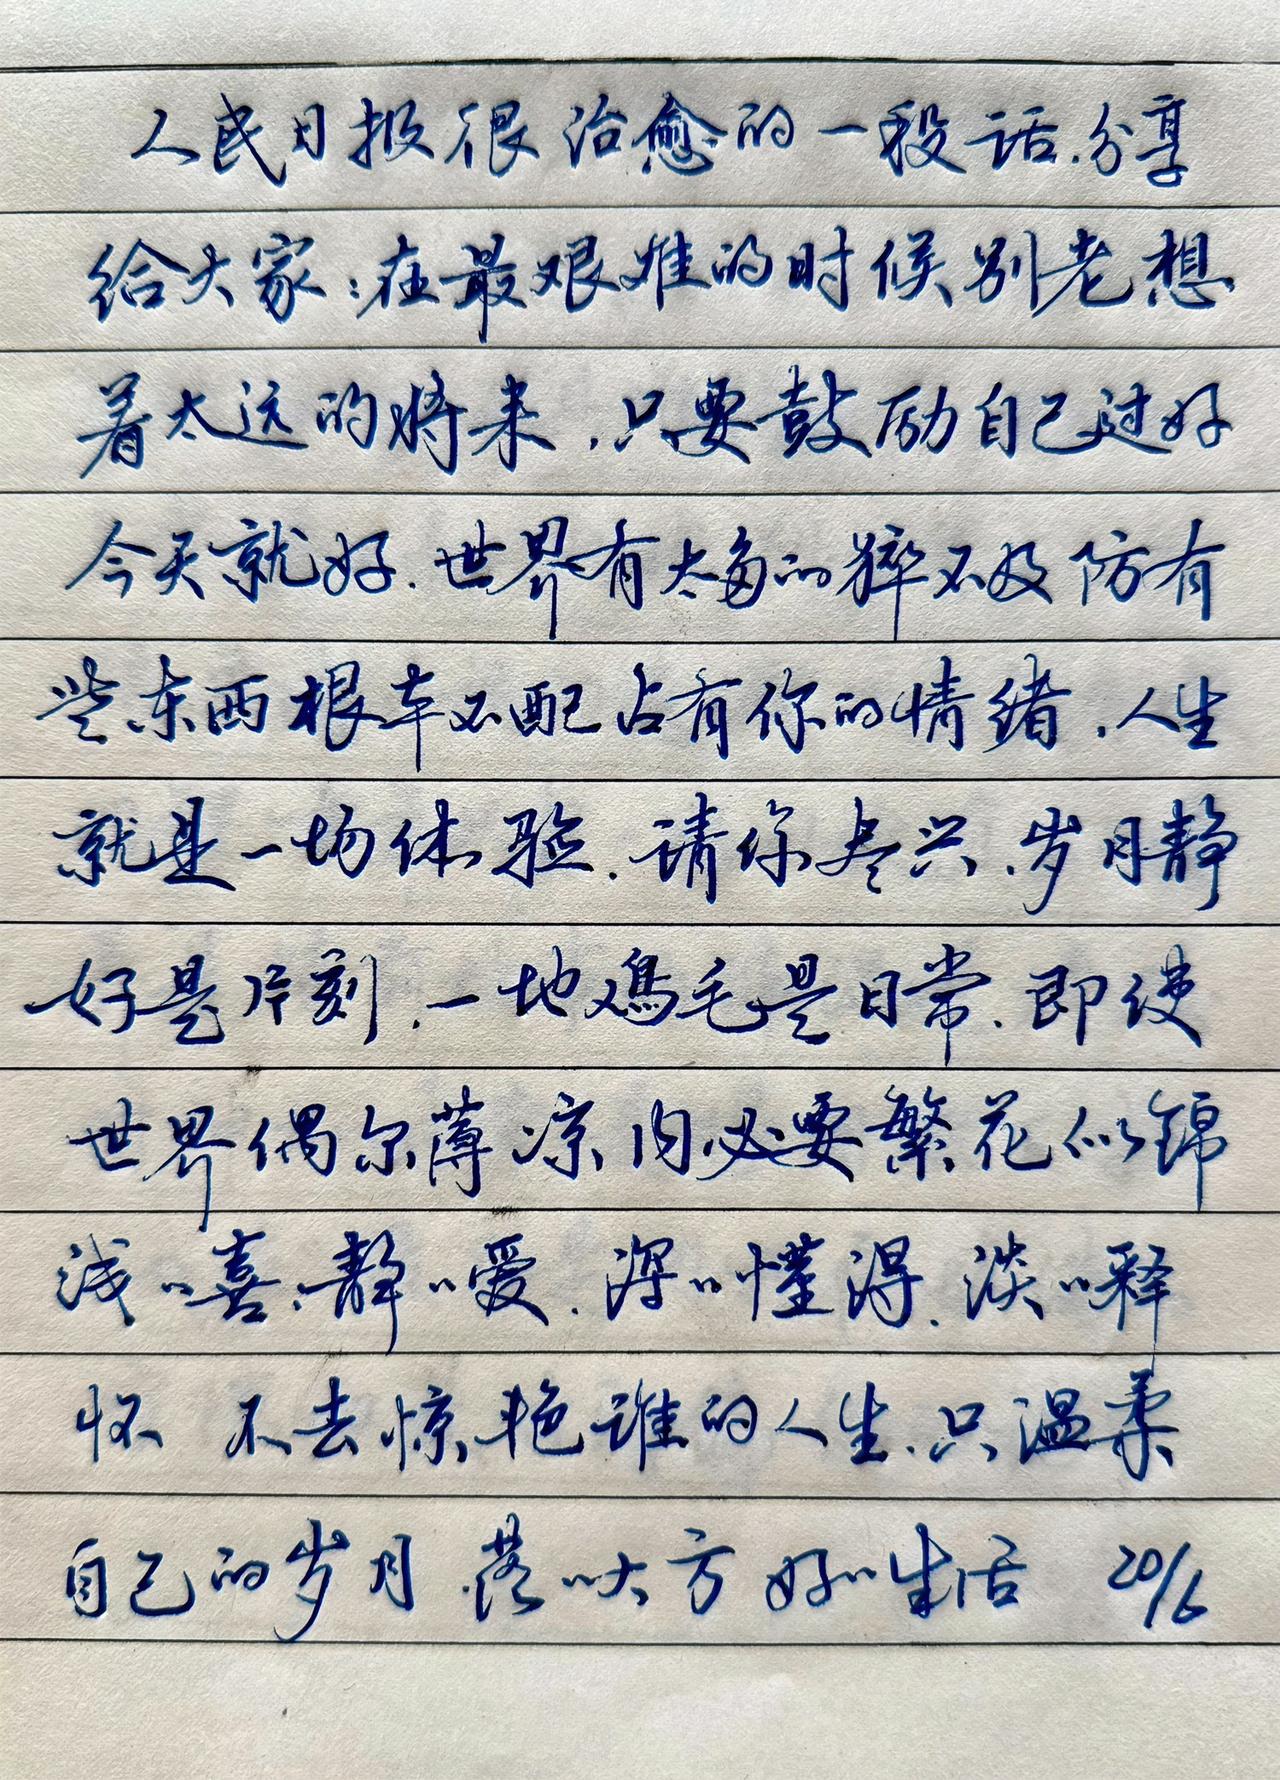 人民日报很治愈的一段话.分享
给大家:在最艰难的时候别老想
着太远的将来,只要鼓励自己过好
今天就好.世界有太多的猝不及防有
些东西根本不配占有你的情绪,人生
就是一场体验.请你尽兴.岁月静
好是片刻,一地鸡毛是日常.即使
世界偶尔薄凉内必要繁花似锦
浅〻喜.静〻爱.深〻懂得.淡〻释
怀 不去惊艳谁的人生.只温柔
自己的岁月.落〻大方 好〻生活 20/6